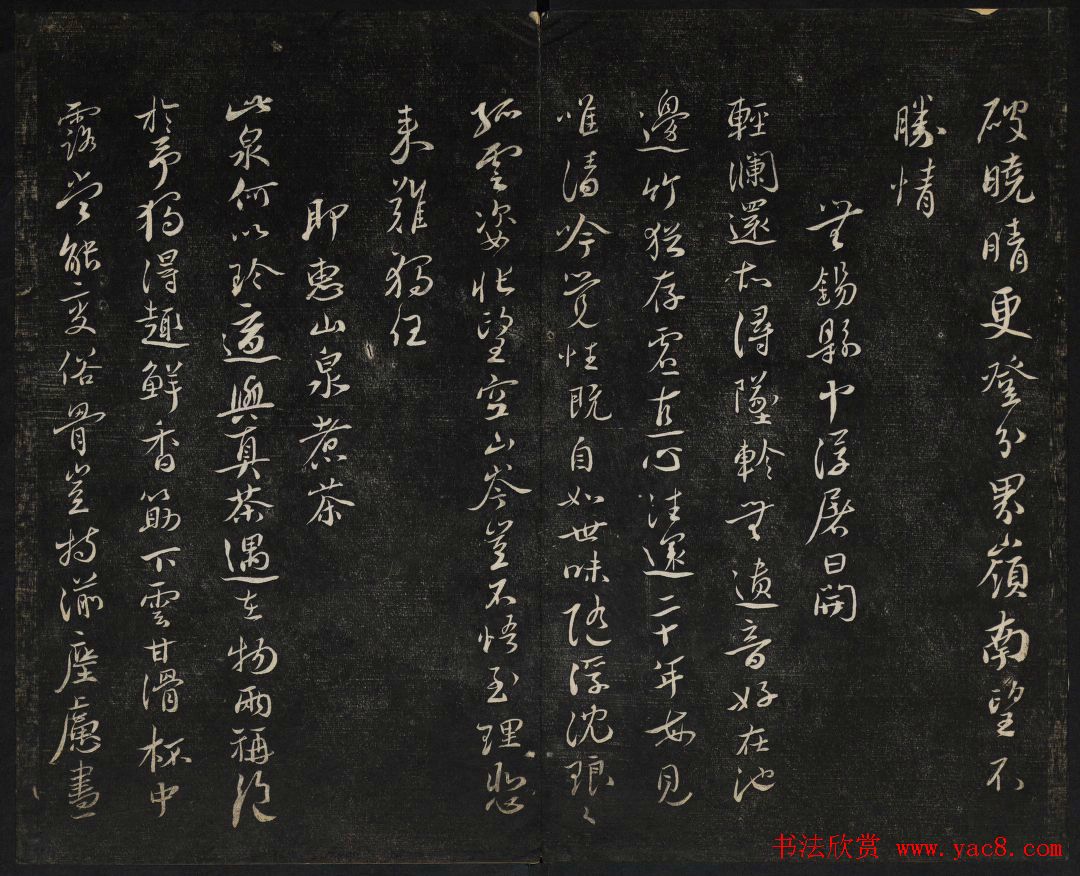 破曉晴更登分界嶺南望不
勝情
無錫縣弔浮屠日開
輕瀾還故潯墜軫無遺音好在池
邊竹猶存虛直心往還二十年每見
唯清吟覺性既自如世味隨浮沈琅々
孤雲姿悵望空山岑豈不悟至理悲
來難獨任
即惠山泉煮茶
此泉何以珍適與真茶遇在物兩稱絕
於予獨得趣鮮香筯下雲甘滑杯中
露當能變俗骨豈特湔塵慮晝
书法欣赏 www.yac8.com